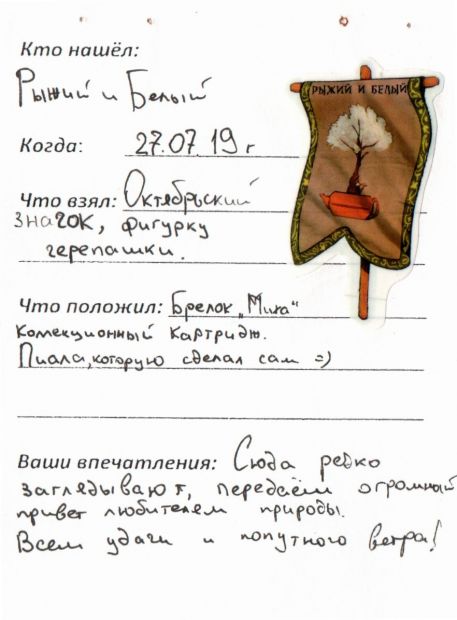 Кто нашёл:
Рыжий и Белый
РЫЖИЙ И БЕЛЫЙ
Когда: 27.07.19 г
Что взял: Октябрьский
значок, фигурку
черепашки.
Что положил: Брелок „Миха"
Коллекционный картридж.
Пиала, которую сделал сам =)
Ваши впечатления: Сюда редко
заглядывают, передаём огромный
привет любителям природы.
Всем удачи и попутного ветра!